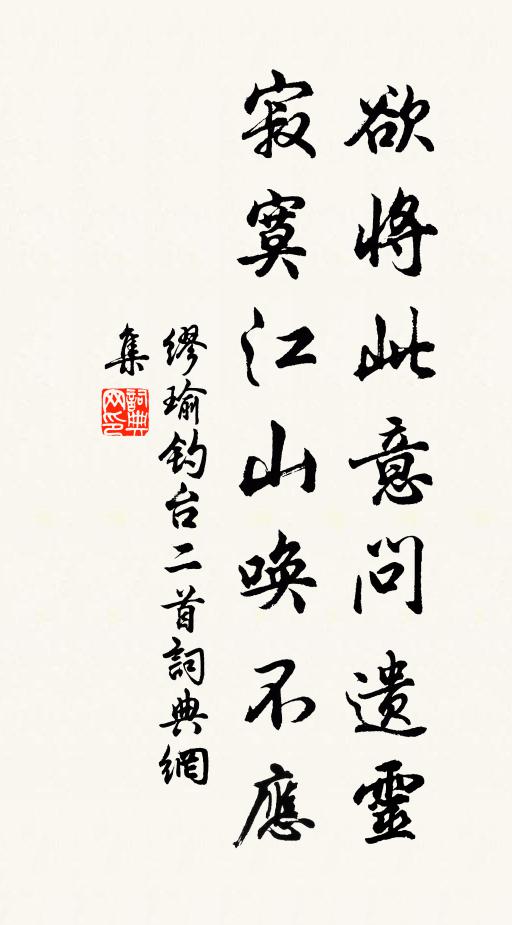 欲將此意問遺靈
寂寞江山喚不應
繆瑜釣台二首詞典網
集
詞典
网印